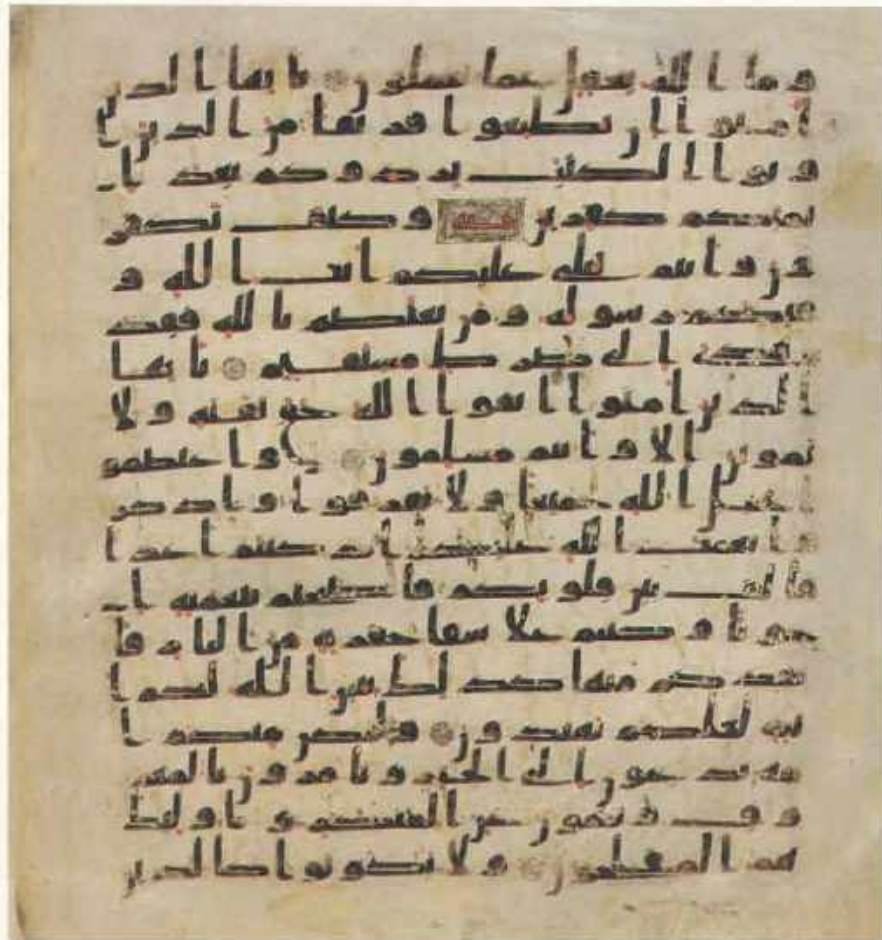 وما الله بغفل عما تعملون يايها الذين
امنوا ان تطيعوا فريقا من الذين ا
وتوا الكتب يردوكم بعد ا
يمنكم كفرين وكيف تكفر
ون وانتم تتلى عليكم ايت الله و
فيكم رسوله ومن يعتصم بالله فقد
هدي الى صرط مستقيم يايها
الذين امنوا اتقوا الله حق تقته ولا
تموتن الا وانتم مسلمون واعتصمو
ا بحبل الله جميعا ولا تفرقوا واذكر
وا نعمت الله عليكم اذ كنتم اعدا
فالف بين قلوبكم فاصبحتم بنعمته ا
خونا وكنتم على شفا حفرة من النار فا
نقذكم منها كذلك يبين الله لكم ا
يته لعلكم تهتدون ولتكن منكم ا
مة يدعون الى الخير ويامرون بالمعر
وف وينهون عن المنكر واولئك
هم المفلحون ولا تكونوا كالذين